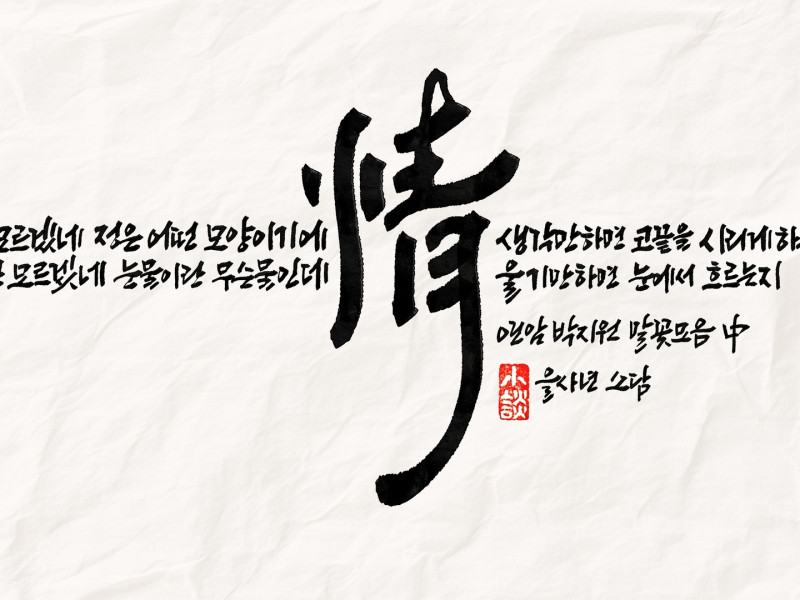 모르겠네 정은 어떤 모양이기에
모르겠네 눈물이란 무슨물인데
情
생각만하면 코끝을 시리게 하
울기만하면 눈에서 흐르는지
연암 박지원 말꽃모음 中
을사년 소담
小談